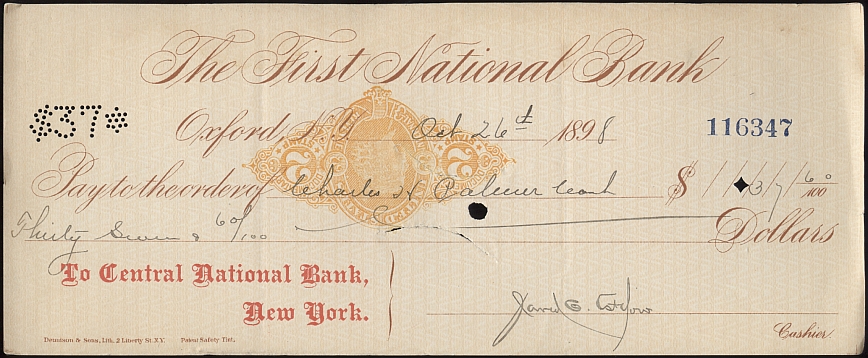 The First National Bank
$37*
Oxford, N.Y. Oct 26th 1898
116347
Pay to the order of Charles H Palmer $ 37 60/100
Thirty Seven & 60/100 Dollars
To Central National Bank,
New York.
Cashier.
Dennison & Sons, Lith. 2 Liberty St. N.Y. Patent Safety Tint.